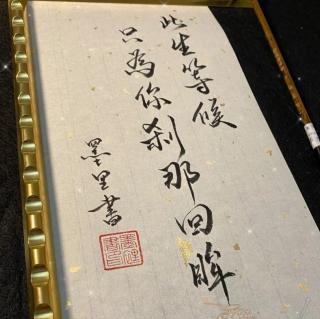 此生等候
只為你剎那回眸
墨里書